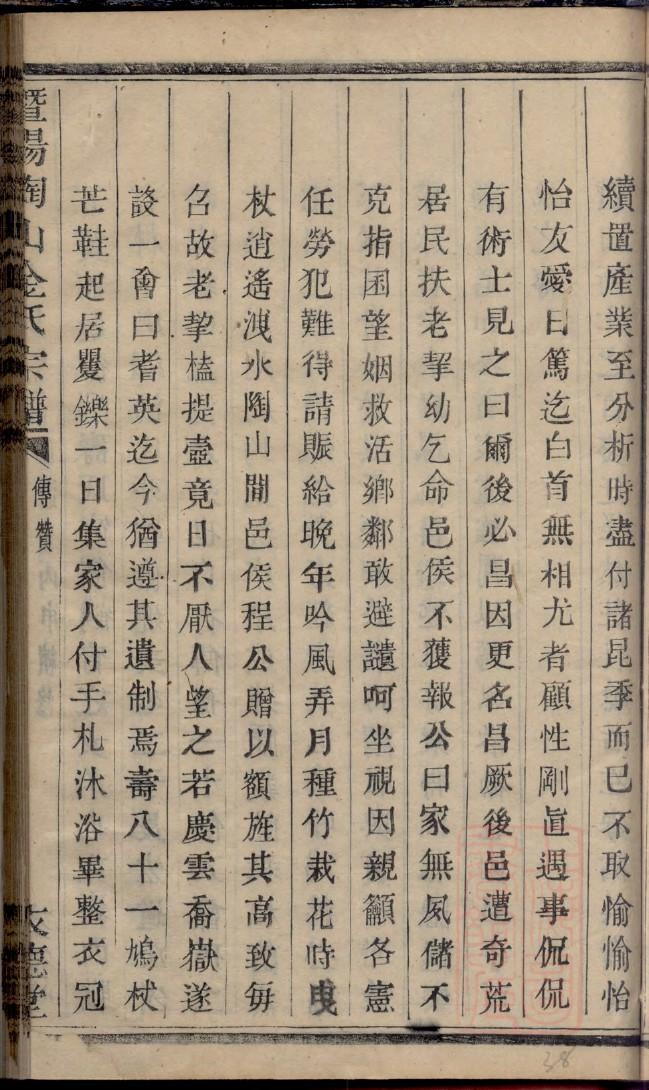 續置產業至分析時盡付諸昆季而已不取愉愉怡
怡友愛日篤迄白首無相尤者顧性剛直遇事侃侃
有術士見之曰爾後必昌因更名昌厥後邑遭奇荒
居民扶老挈幼乞命邑侯不獲報公曰家無夙儲不
克指囷望姻救活鄉鄰敢避譴呵坐視因親籲各憲
任勞犯難得請賑給晚年吟風弄月種竹栽花時曳
杖逍遙洩水陶山間邑侯程公贈以額旌其高致每
召故老挈榼提壺竟日不厭人望之若慶雲喬嶽遂
設一會曰耆英迄今猶遵其遺制焉壽八十一鳩杖
芒鞋起居矍鑠一日集家人付手札沐浴畢整衣冠
暨陽陶山金氏宗譜 傳贊 友德堂
38